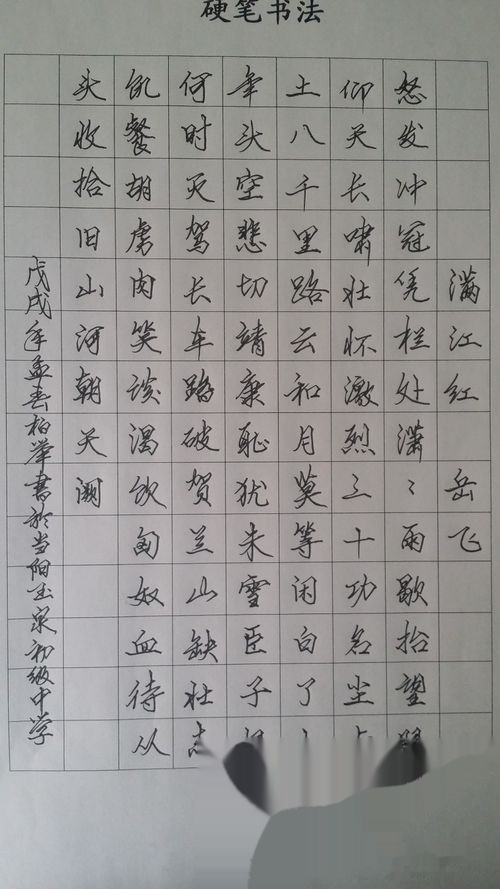 硬笔书法
满江红 岳飞
怒发冲冠凭栏处潇〻雨歇抬望
仰天长啸壮怀激烈三十功名尘
土八千里路云和月莫等闲白了
年头空悲切靖康耻犹未雪臣子
何时灭驾长车踏破贺兰山缺壮志
饥餐胡虏肉笑谈渴饮匈奴血待从
头收拾旧山河朝天阙
戊戌年孟春柏举書於当阳玉泉初级中学